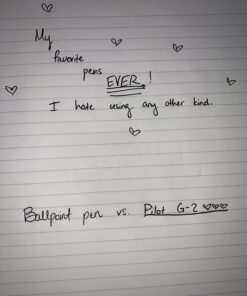 My
favorite
pens
EVER!
I hate using any other kind.
Ballpoint pen vs. Pilot G-2 ♡♡♡